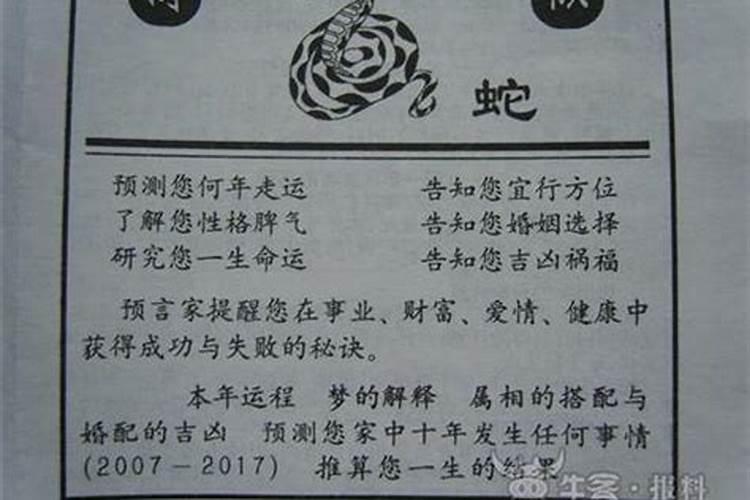 蛇
预测您何年走运 告知您宜行方位
了解您性格脾气 告知您婚姻选择
研究您一生命运 告知您吉凶祸福
预言家提醒您在事业、财富、爱情、健康中
获得成功与失败的秘诀。
本年运程 梦的解释 属相的搭配与
婚配的吉凶 预测您家中十年发生任何事情
(2007－2017) 推算您一生的结果
·报料